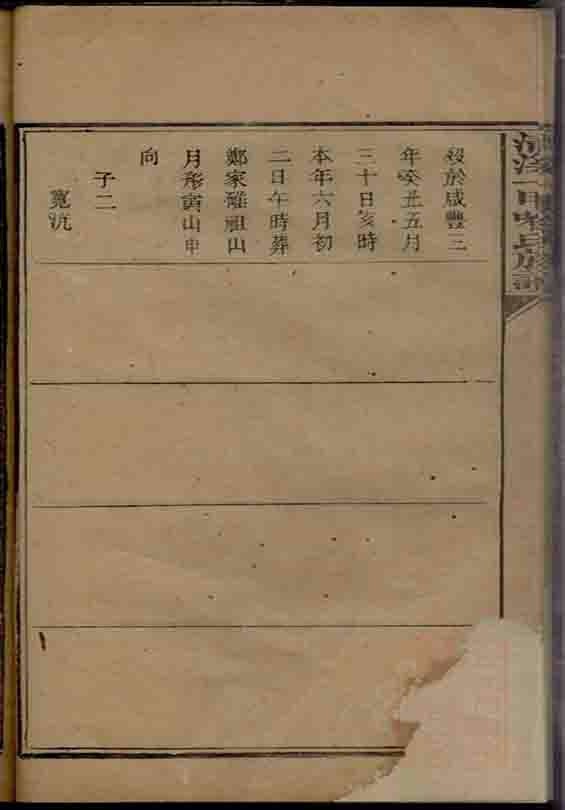 歿於咸豐三
年癸丑五月
三十日亥時
本年六月初
二日午時葬
鄭家碓祖山
月形寅山申
向
子二
寬沆